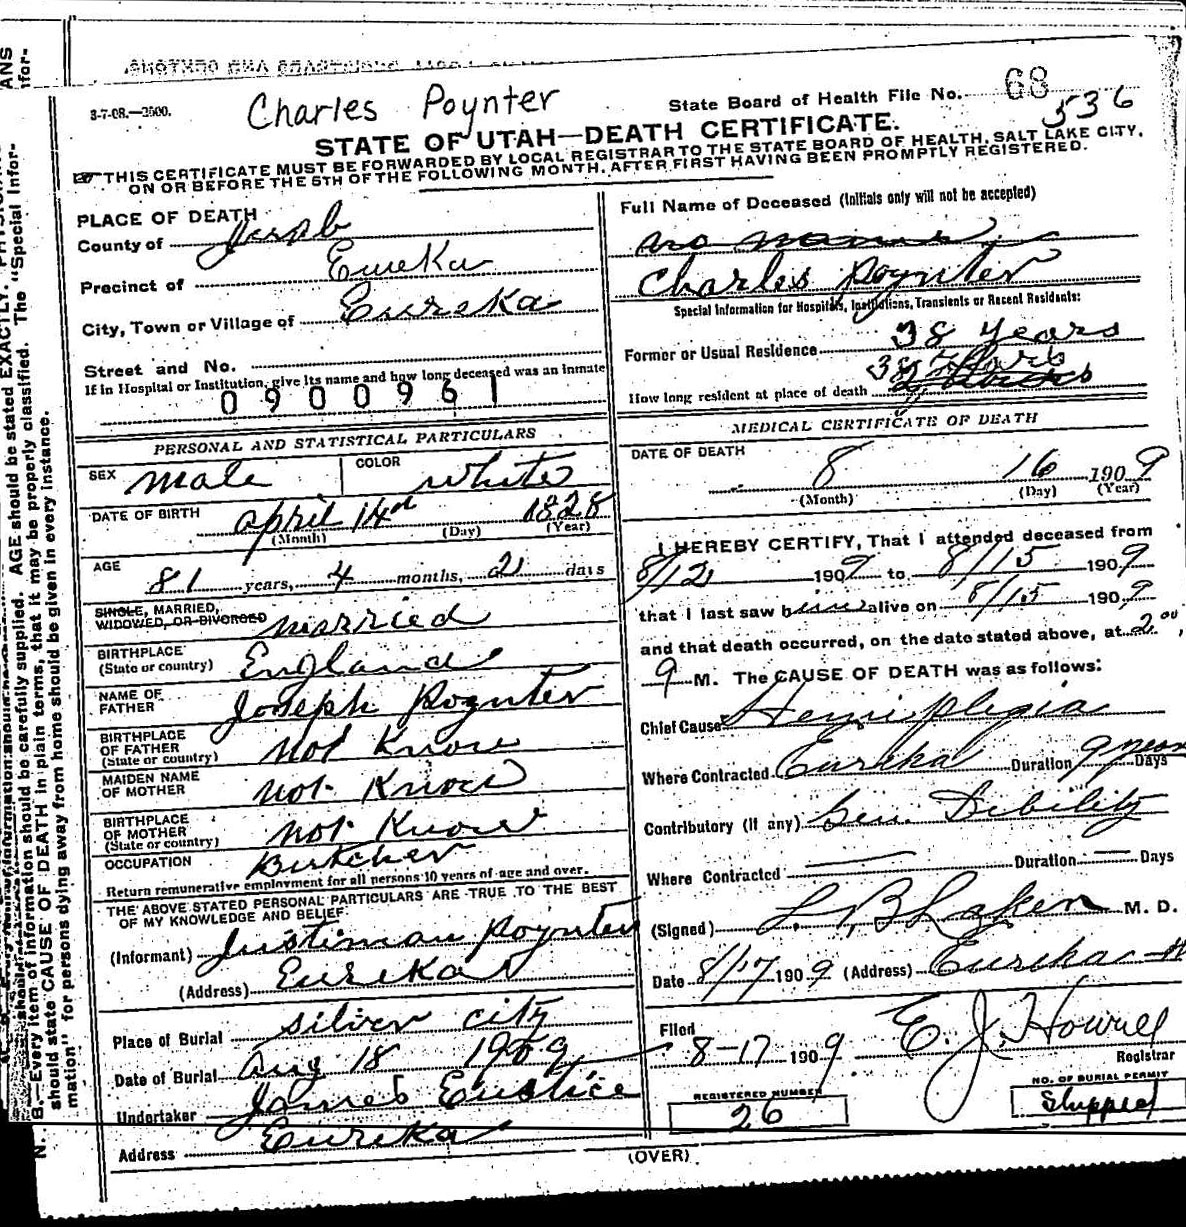 3-7-08.—2500.
Charles Poynter
State Board of Health File No. 68
536
STATE OF UTAH—DEATH CERTIFICATE.
THIS CERTIFICATE MUST BE FORWARDED BY LOCAL REGISTRAR TO THE STATE BOARD OF HEALTH, SALT LAKE CITY,
ON OR BEFORE THE 5TH OF THE FOLLOWING MONTH, AFTER FIRST HAVING BEEN PROMPTLY REGISTERED.
PLACE OF DEATH
County of Juab
Precinct of Eureka
City, Town or Village of Eureka
Street and No.
If in Hospital or Institution, give its name and how long deceased was an inmate
0900961
PERSONAL AND STATISTICAL PARTICULARS
SEX male COLOR white
DATE OF BIRTH April 14th 1828
(Month) (Day) (Year)
AGE
81 years, 4 months, 2 days
SINGLE, MARRIED,
WIDOWED, OR DIVORCED married
BIRTHPLACE
(State or country) England
NAME OF
FATHER Joseph Poynter
BIRTHPLACE
OF FATHER
(State or country) not Know
MAIDEN NAME
OF MOTHER not Know
BIRTHPLACE
OF MOTHER
(State or country) not Know
OCCUPATION Butcher
Return remunerative employment for all persons 10 years of age and over.
THE ABOVE STATED PERSONAL PARTICULARS ARE TRUE TO THE BEST
OF MY KNOWLEDGE AND BELIEF
(Informant) Justinian Poynter
(Address) Eureka
Place of Burial silver city
Date of Burial Aug 18 1909
Undertaker James Eustice
Address Eureka
Full Name of Deceased (Initials only will not be accepted)
no name
Charles Poynter
Special Information for Hospitals, Institutions, Transients or Recent Residents:
Former or Usual Residence 38 years
38 years
How long resident at place of death
MEDICAL CERTIFICATE OF DEATH
DATE OF DEATH
8 16 1909
(Month) (Day) (Year)
I HEREBY CERTIFY, That I attended deceased from
8/12 1909 to 8/15 1909
that I last saw him alive on 8/15 1909
and that death occurred, on the date stated above, at 2.00,
M. The CAUSE OF DEATH was as follows:
Chief Cause Hemiplegia
Where Contracted Eureka Duration 9 years Days
Contributory (if any) Gen. Debility
Where Contracted — Duration — Days
(Signed) Laker M. D.
Date 8/17 1909 (Address) Eureka
Filed
8-17 1909 E. J. Howell
Registrar
REGISTERED NUMBER
26
NO. OF BURIAL PERMIT
Shipped
(OVER)
N. B.—Every item of information should be carefully supplied. AGE should be stated EXACTLY.
should state CAUSE OF DEATH in plain terms, that it may be properly classified. The "Special Infor-
mation" for persons dying away from home should be given in every instance.